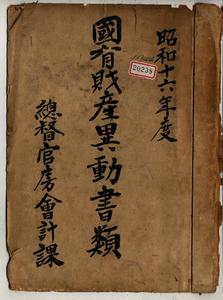 昭和十六年度
20238
國有財産異動書類
總督官房會計課